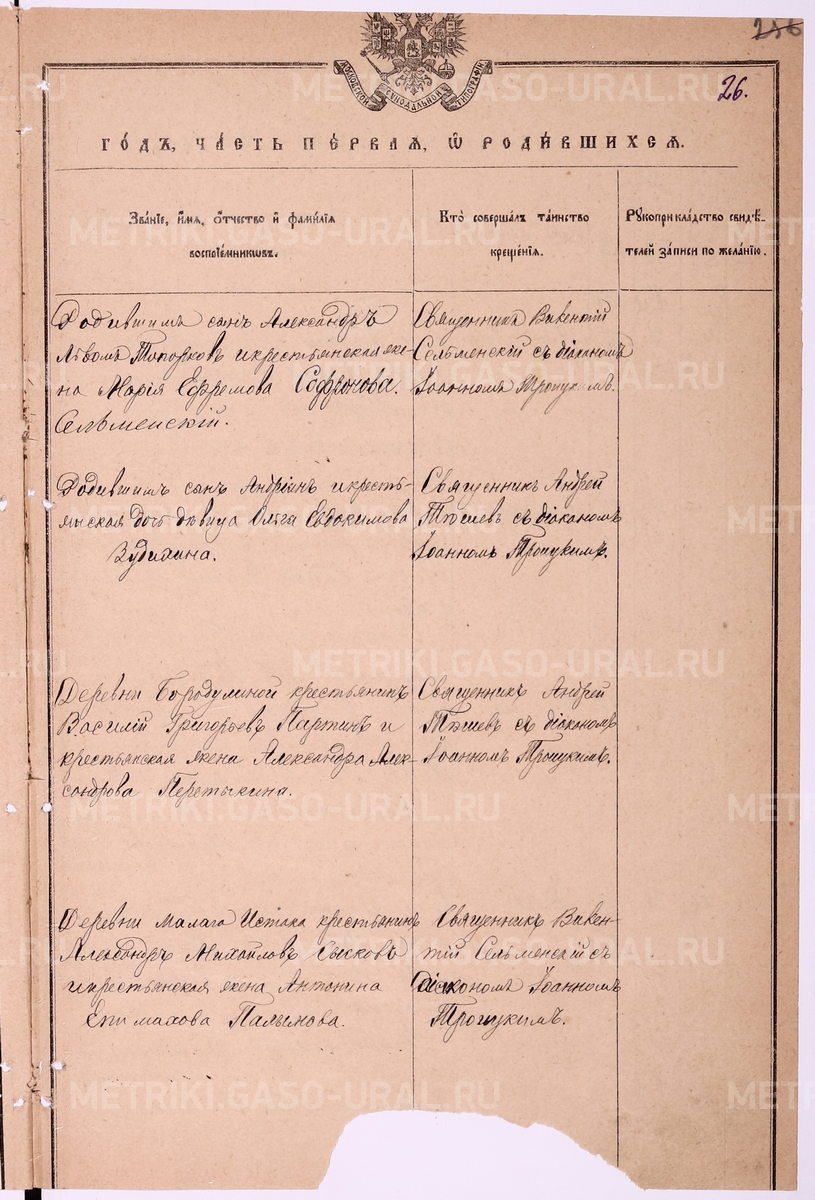 256
26.
МОСКОВСКОЙ СѴНОДАЛЬНОЙ ТИПОГРАФІИ
ГО́ДЪ, ЧА́СТЬ ПЕ́РВАЯ, Ѡ҆ РОДИ́ВШИХСЯ.
Зва́ніе, и҆́мя, ѻ҆́тчество и҆ фами́лія
воспріе́мниковъ.
Кто̀ соверша́лъ та́инство
креще́нія.
Рукоприкла́дство свидѣ́-
телей за́писи по жела́нію.
Родившимъ сынъ Александръ
Львомъ Топорковъ и крестьянская же-
на Марія Ефремова Софронова.
Сельменскій.
Священникъ Викентій
Сельменскій съ діакономъ
Іоанномъ Троицкимъ.
Родившимъ сынъ Андріанъ и кресть-
янская доч дѣвица Ольга Евдокимова
Зудихина.
Священникъ Андрей
съ діакономъ
Іоанномъ Троицкимъ.
Деревни Бородулиной крестьянинъ
Василій Григорьевъ Партинъ и
крестьянская жена Александра Алек-
сандрова Перетыкина.
Священникъ Андрей
съ діакономъ
Іоанномъ Троицкимъ.
Деревни Малаго Истока крестьянинъ
Александръ Михайловъ Сысковъ
и крестьянская жена Антонина
Епимахова Палымова.
Священникъ Викен-
тій Сельменскій съ
діакономъ Іоанномъ
Троицкимъ.
METRIKI.GASO-URAL.RU